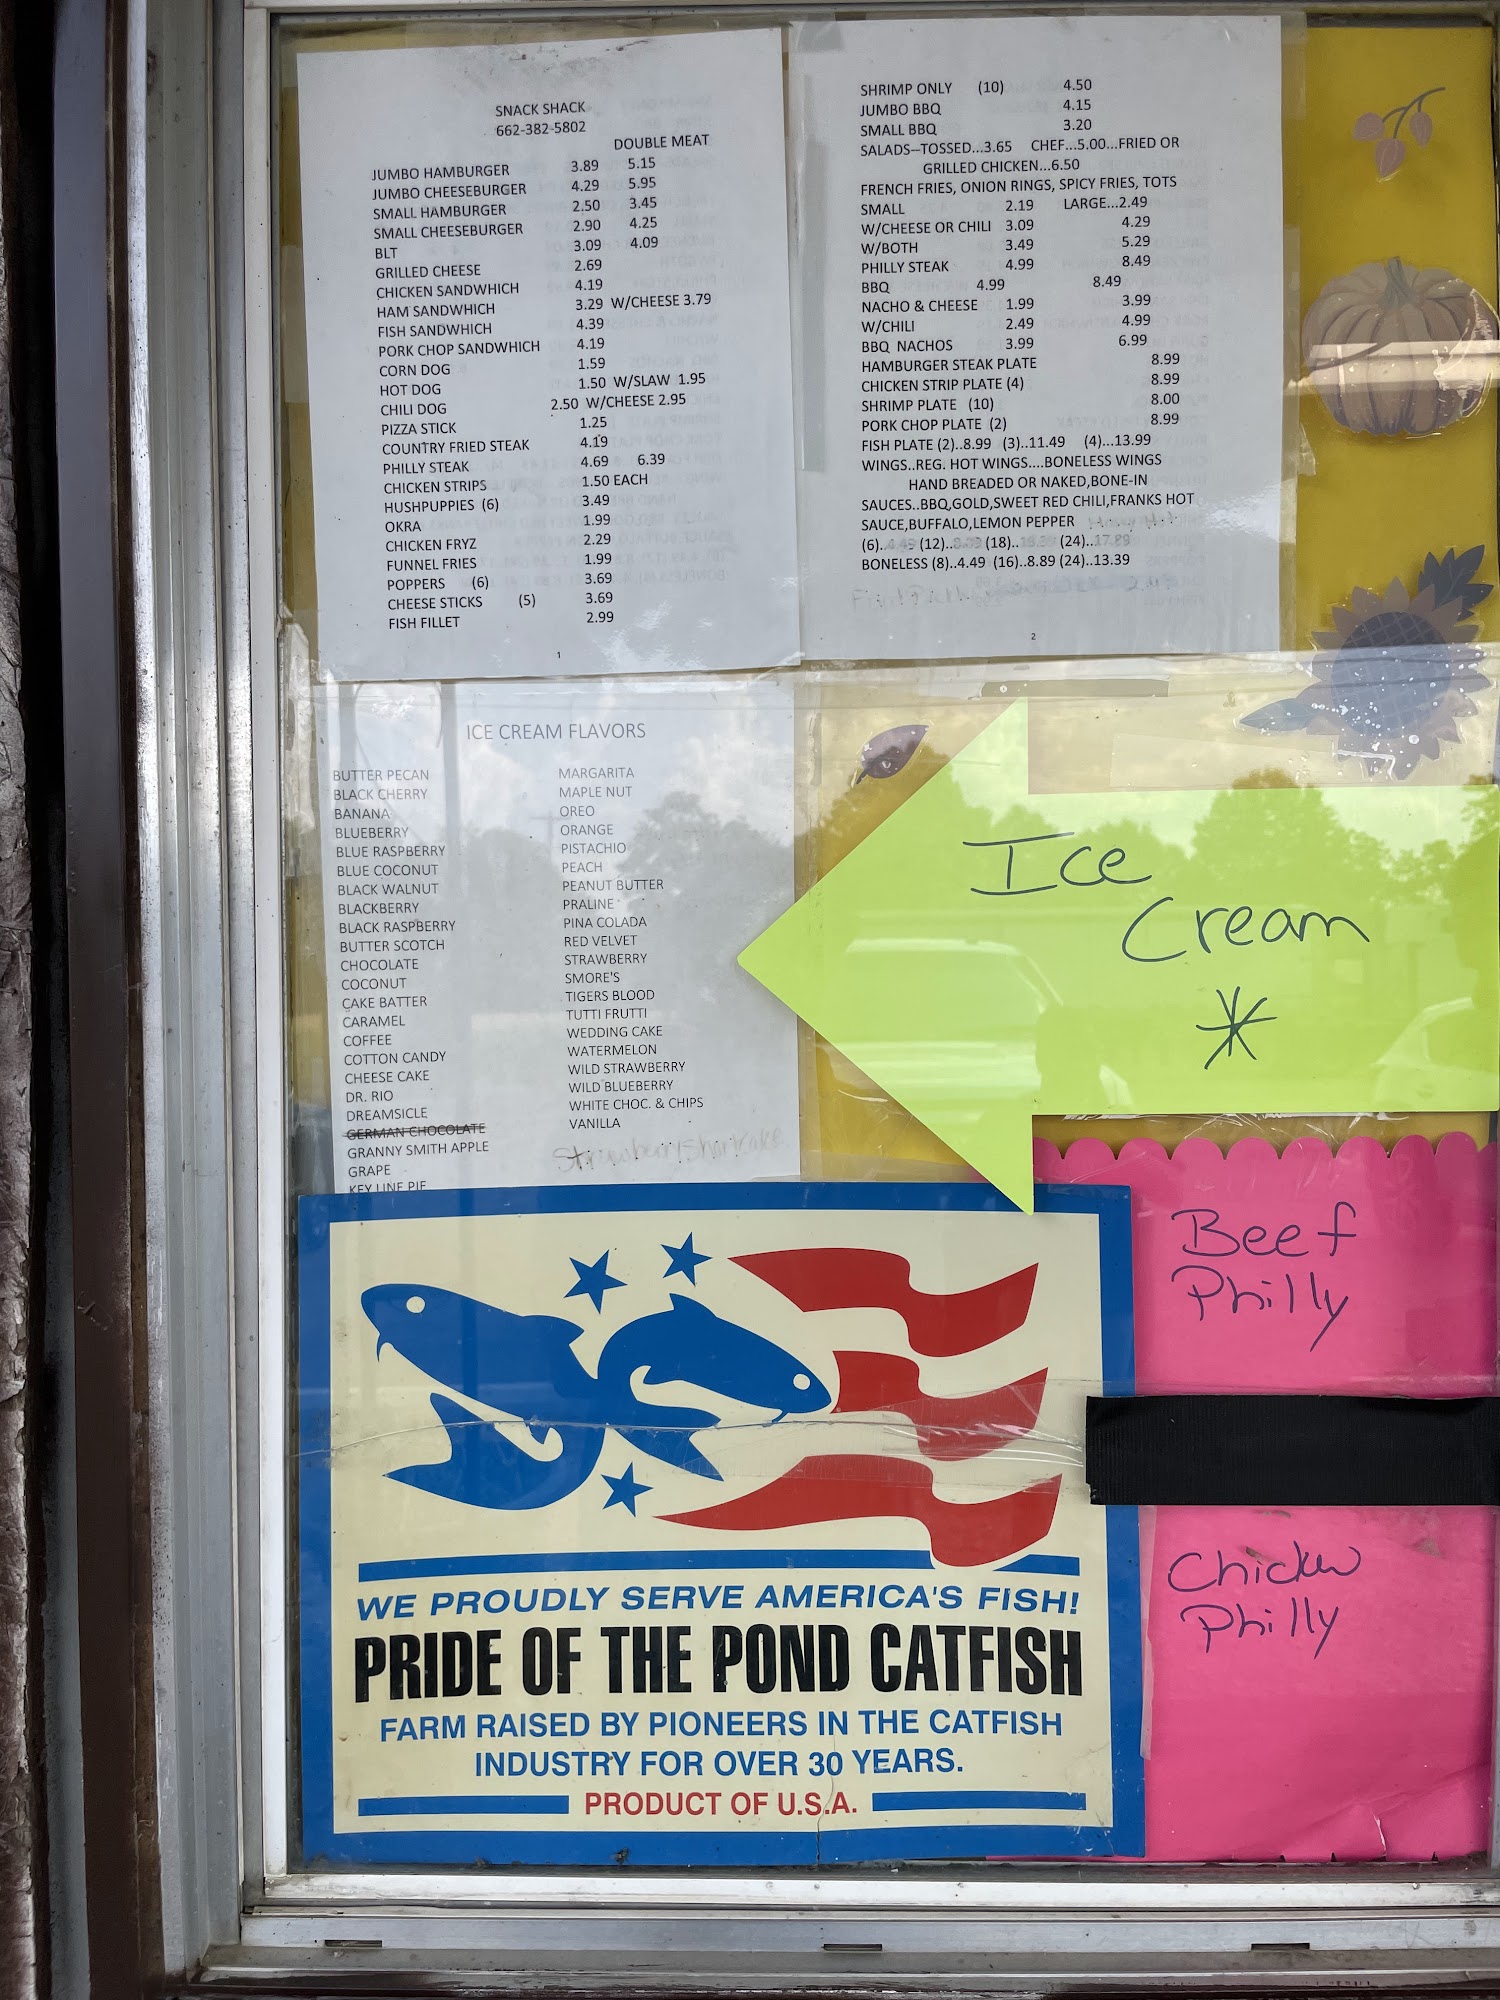 SNACK SHACK
662-382-5802
DOUBLE MEAT
JUMBO HAMBURGER 3.89 5.15
JUMBO CHEESEBURGER 4.29 5.95
SMALL HAMBURGER 2.50 3.45
SMALL CHEESEBURGER 2.90 4.25
BLT 3.09 4.09
GRILLED CHEESE 2.69
CHICKEN SANDWHICH 4.19
HAM SANDWHICH 3.29 W/CHEESE 3.79
FISH SANDWHICH 4.39
PORK CHOP SANDWHICH 4.19
CORN DOG 1.59
HOT DOG 1.50 W/SLAW 1.95
CHILI DOG 2.50 W/CHEESE 2.95
PIZZA STICK 1.25
COUNTRY FRIED STEAK 4.19
PHILLY STEAK 4.69 6.39
CHICKEN STRIPS 1.50 EACH
HUSHPUPPIES (6) 3.49
OKRA 1.99
CHICKEN FRYZ 2.29
FUNNEL FRIES 1.99
POPPERS (6) 3.69
CHEESE STICKS (5) 3.69
FISH FILLET 2.99
1
SHRIMP ONLY (10) 4.50
JUMBO BBQ 4.15
SMALL BBQ 3.20
SALADS--TOSSED...3.65 CHEF...5.00...FRIED OR
GRILLED CHICKEN...6.50
FRENCH FRIES, ONION RINGS, SPICY FRIES, TOTS
SMALL 2.19 LARGE...2.49
W/CHEESE OR CHILI 3.09 4.29
W/BOTH 3.49 5.29
PHILLY STEAK 4.99 8.49
BBQ 4.99 8.49
NACHO & CHEESE 1.99 3.99
W/CHILI 2.49 4.99
BBQ NACHOS 3.99 6.99
HAMBURGER STEAK PLATE 8.99
CHICKEN STRIP PLATE (4) 8.99
SHRIMP PLATE (10) 8.00
PORK CHOP PLATE (2) 8.99
FISH PLATE (2)..8.99 (3)..11.49 (4)...13.99
WINGS..REG. HOT WINGS....BONELESS WINGS
HAND BREADED OR NAKED,BONE-IN
SAUCES..BBQ,GOLD,SWEET RED CHILI,FRANKS HOT
SAUCE,BUFFALO,LEMON PEPPER
(6)..4.49 (12)..8.89 (18).. (24)..17.89
BONELESS (8)..4.49 (16)..8.89 (24)..13.39
2
ICE CREAM FLAVORS
BUTTER PECAN
BLACK CHERRY
BANANA
BLUEBERRY
BLUE RASPBERRY
BLUE COCONUT
BLACK WALNUT
BLACKBERRY
BLACK RASPBERRY
BUTTER SCOTCH
CHOCOLATE
COCONUT
CAKE BATTER
CARAMEL
COFFEE
COTTON CANDY
CHEESE CAKE
DR. RIO
DREAMSICLE
GERMAN CHOCOLATE
GRANNY SMITH APPLE
GRAPE
KEY LINE PIE
MARGARITA
MAPLE NUT
OREO
ORANGE
PISTACHIO
PEACH
PEANUT BUTTER
PRALINE
PINA COLADA
RED VELVET
STRAWBERRY
SMORE'S
TIGERS BLOOD
TUTTI FRUTTI
WEDDING CAKE
WATERMELON
WILD STRAWBERRY
WILD BLUEBERRY
WHITE CHOC. & CHIPS
VANILLA
Ice
Cream
Beef
Philly
Chicken
Philly
WE PROUDLY SERVE AMERICA'S FISH!
PRIDE OF THE POND CATFISH
FARM RAISED BY PIONEERS IN THE CATFISH
INDUSTRY FOR OVER 30 YEARS.
PRODUCT OF U.S.A.